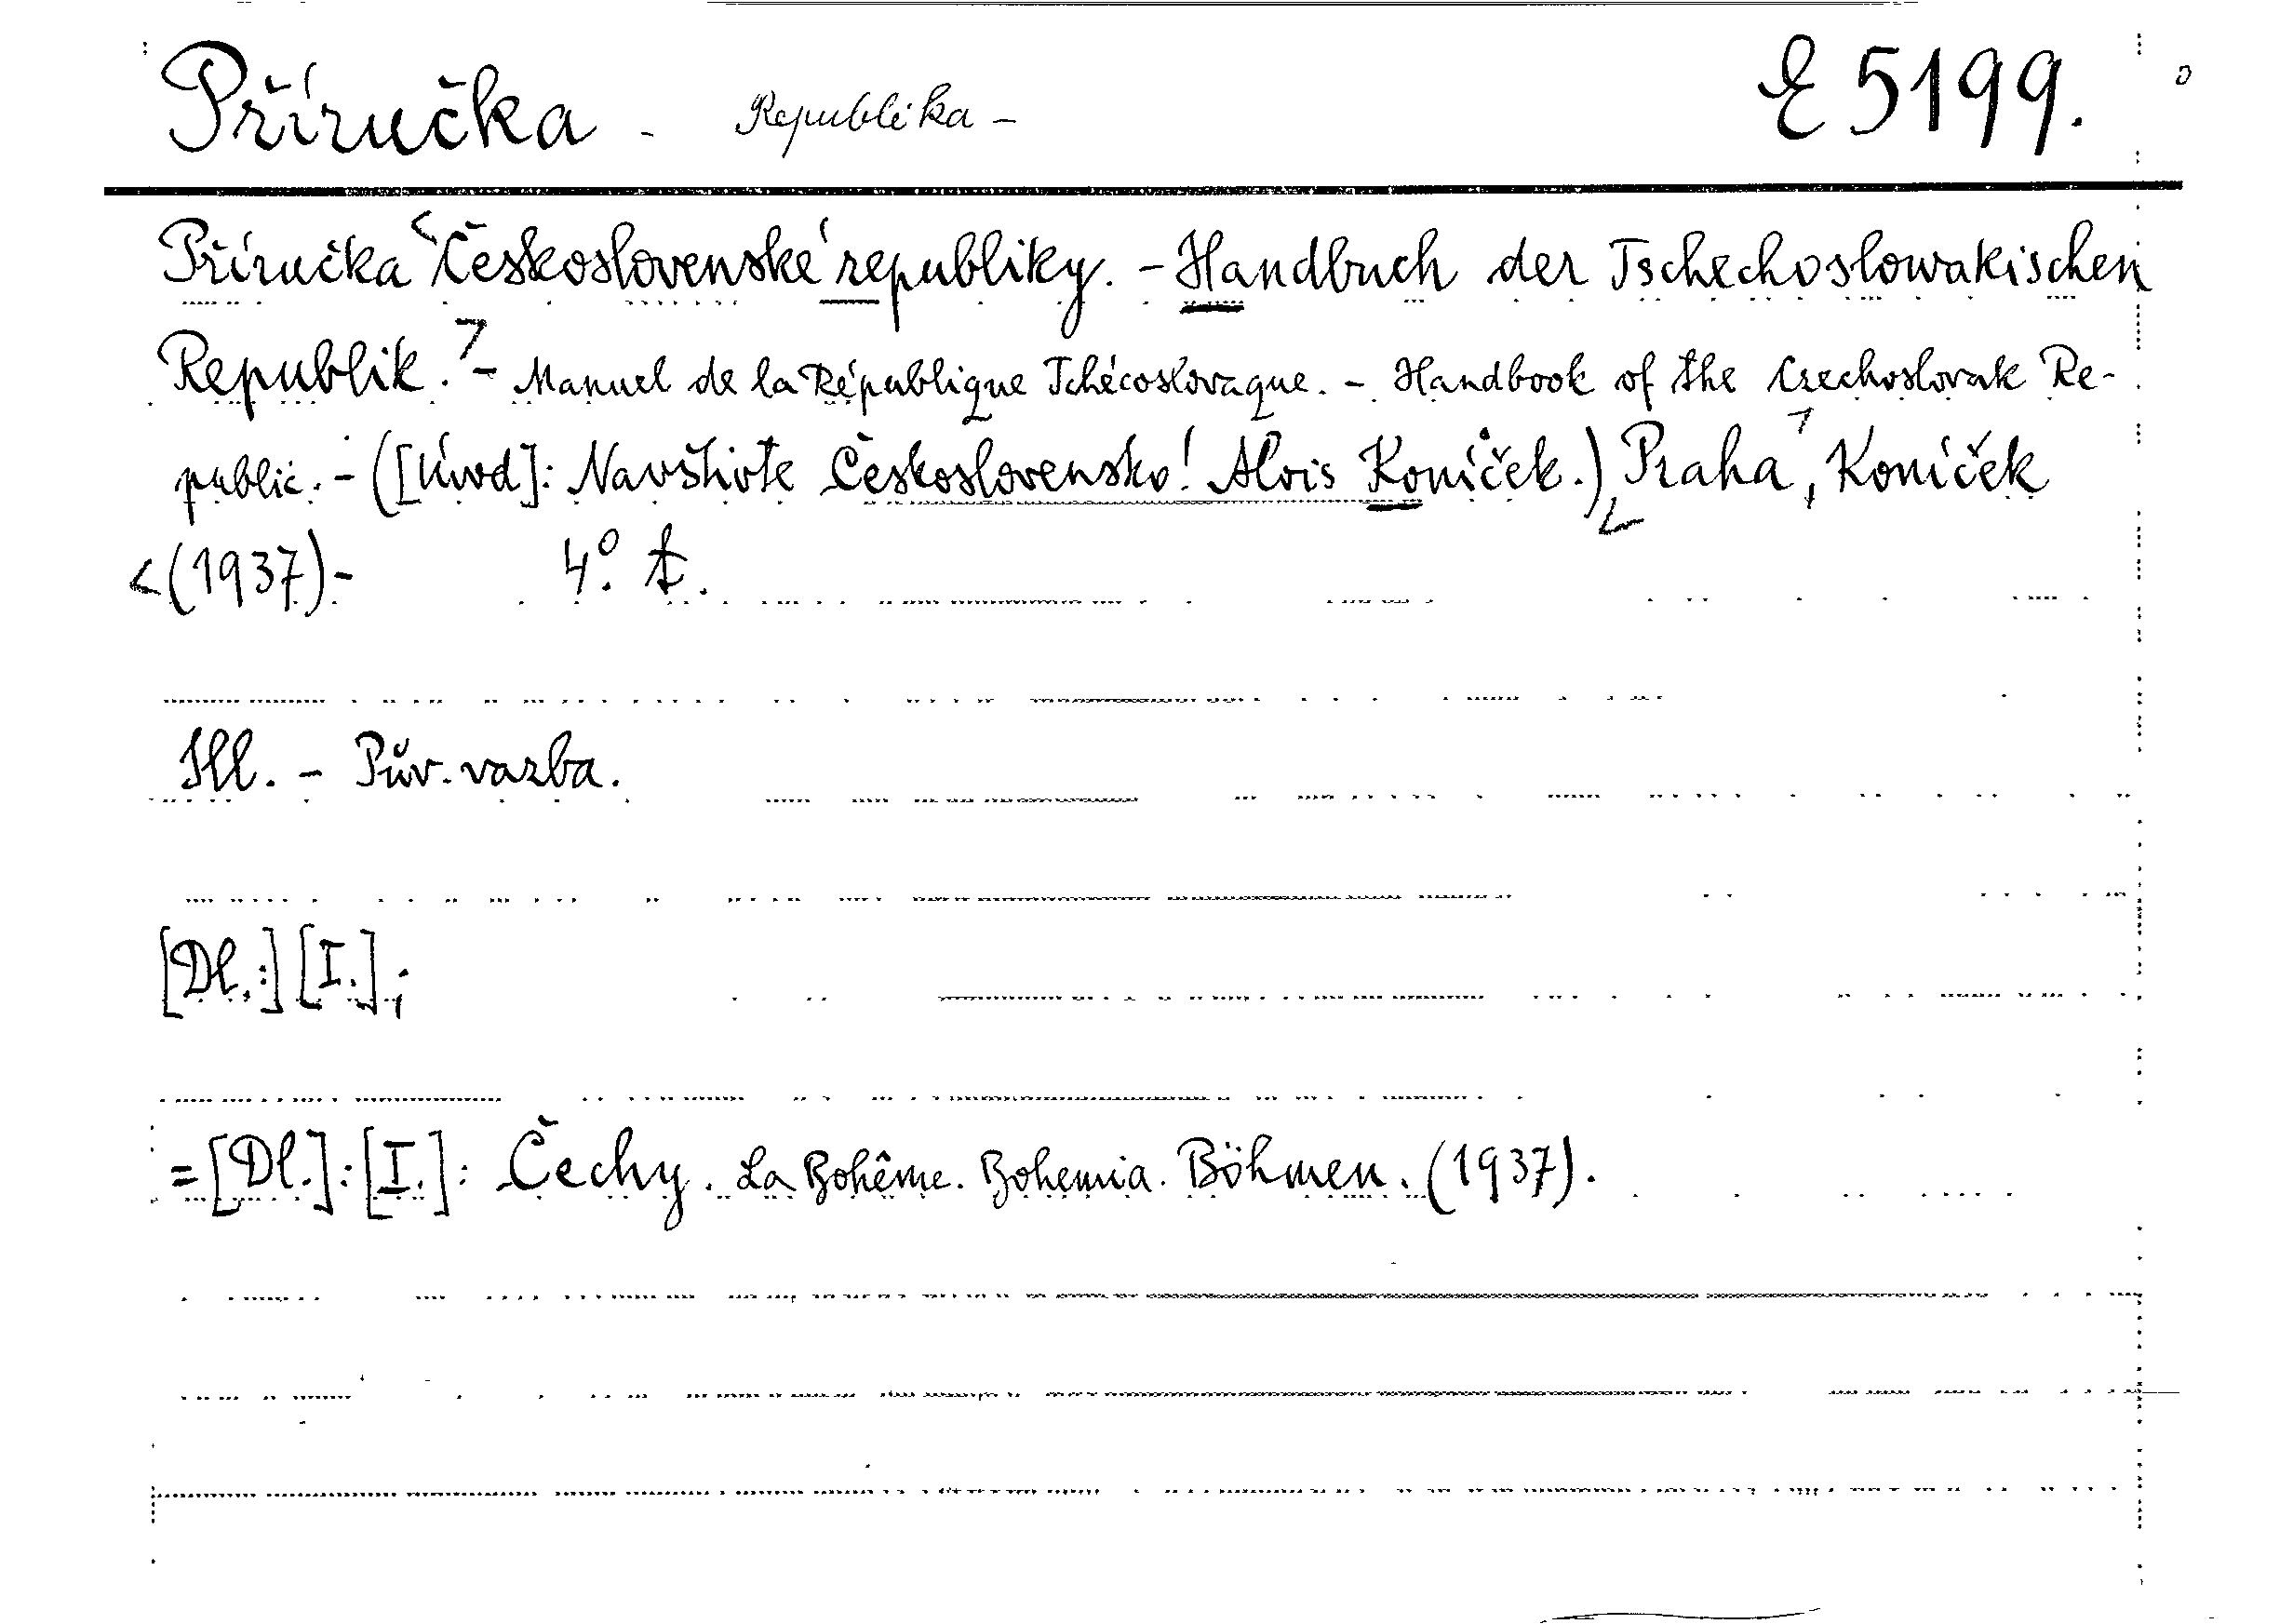 Příručka - Republika - E 5199.
Příručka Československé republiky. - Handbuch der Tschechoslowakischen
Republik. - Manuel de la République Tchécoslovaque. - Handbook of the Czechoslovak Re-
public. - ([Úvod]: Navštivte Československo! Alois Koníček.) Praha, Koníček
(1937)- 4°.
Ill. - Pův. vazba.
[Dl.:] [I.];
= [Dl.]: [I.]: Čechy. La Bohême. Bohemia. Böhmen. (1937).